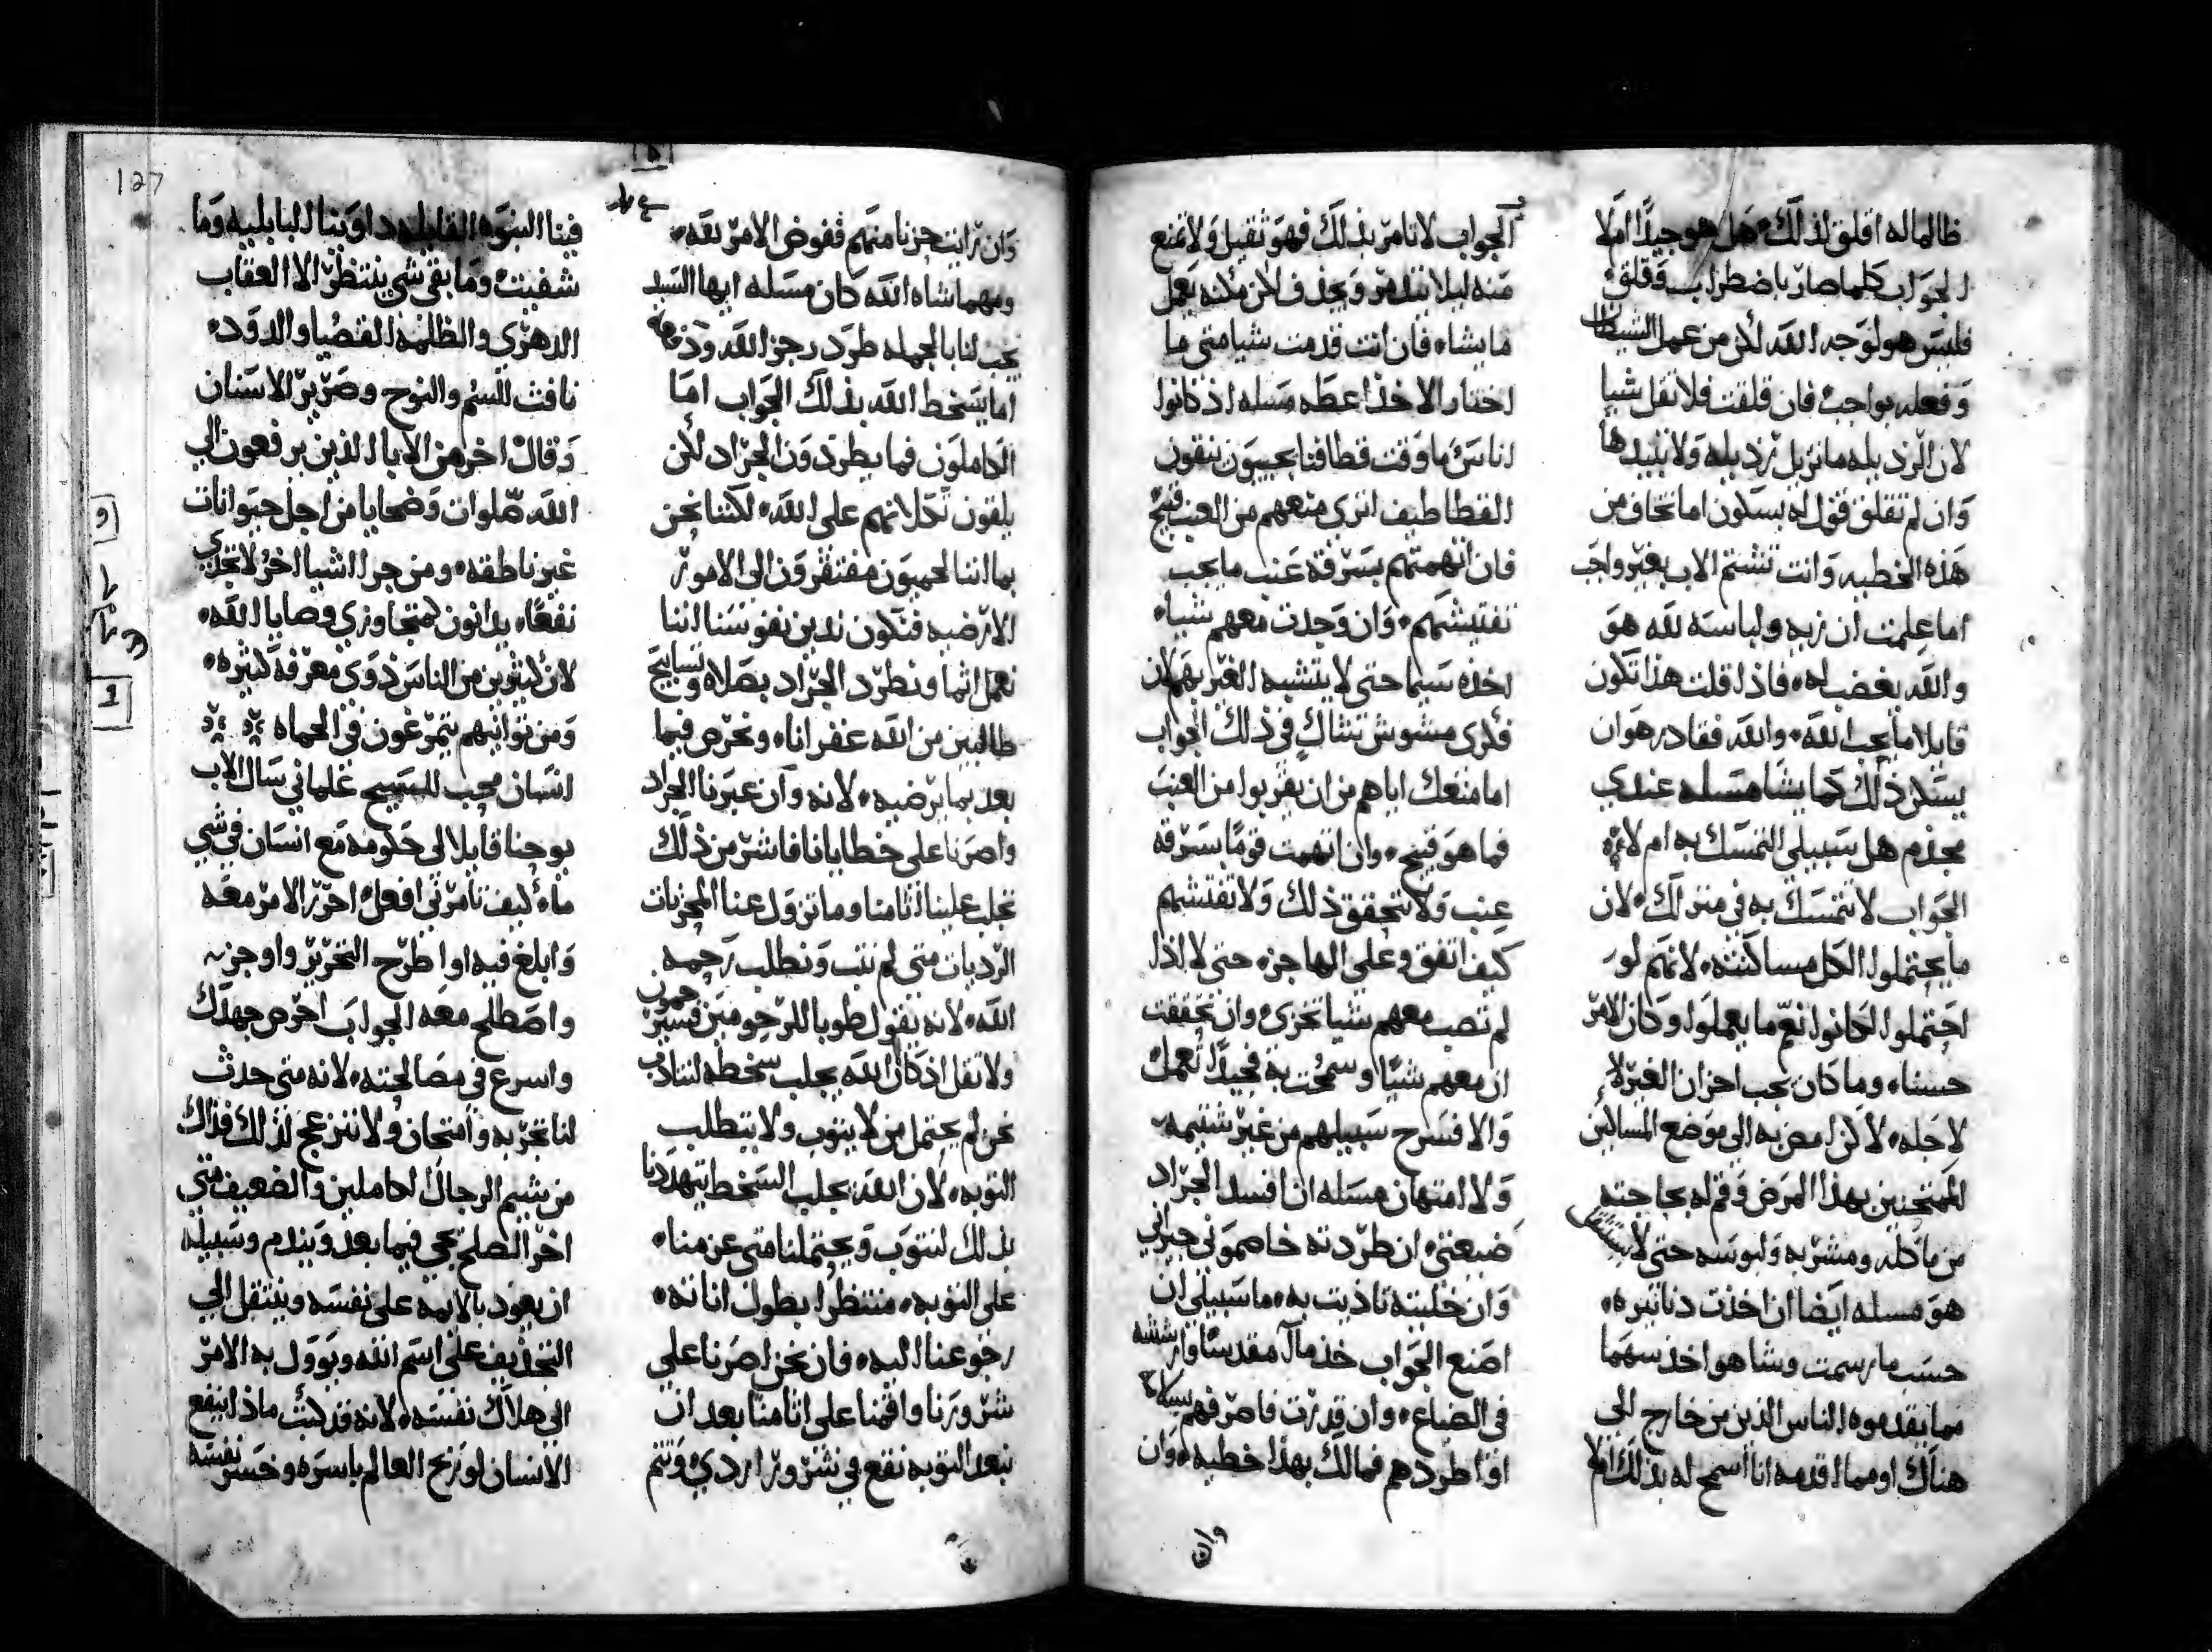 ظالما له اقلق لذلك هل هو جيدًا ام لا
الجواب كلما صار باضطراب وقلق
فليس هو لوجه الله لكن من عمل الشيطان
وفعله بواجب فان قلقت فلا تقل شيا
لان الرذيله ما تزيل رذيله ولا تبيدها
وان لم تقلق قول له بسكون اما تخاف من
هذه الخطيه وانت تشتم الاب بغير واجب
اما علمت ان زيه ولباسه لله هو
والله يغضب له فاذا قلت هذا تكون
قايلا ما يجب لله والله فقادر هو ان
يسكن ذلك كما يشا مسله عندي
مجذم هل سبيلي التمسك به ام لا
الجواب لا تتمسك به في منزلك لان
ما يحتملوا الكل مساكنته لانهم لو
احتملوا لكانوا نعم ما يعملوا وكان الامر
حسنا وما كان يجب احزان الغير لا
لاجله لكن امض به الى موضع المساكين
الممتحنين بهذا المرض وقم له بحاجته
من ماكله ومشربه ولبوسه حتى لا
هو مسله ايضا ان اخذت دنانيره
حسب ما رسمت وشا هو اخذ سهما
مما يقدموه الناس الذين من خارج الى
هناك او مما اقدمه انا اسمح له بذلك ام لا
الجواب لا تامر بذلك فهو ثقيل ولا تمنع
منه ليلا يتذمر ويجذف لكن مكنه يعمل
ما يشاء فان انت قدمت شيا متى ما
اختار الاخذ اعطه مسله اذ كانوا
اناس ما وقت قطافنا يجيبون ينقون
القطاطيف اترى منعهم من العنب قبيح
فان اتهمتهم بسرقة عنب ما يجب
تفتيشهم وان وجدت معهم شيا
اخذه سيما حتى لا يتشبه الغير بهم لان
فكري مشوش تشاك في ذلك الجواب
اما منعك اياهم من ان يقربوا من العنب
فما هو قبيح وان اتهمت قومًا بسرقة
عنب ولا تتحقق ذلك ولا تفتشهم
كيف اتفق وعلى الهاجزه حتى لا اذا
لم تصب معهم شيا تخزى وان تحققت
ان معهم شيًا وسمحت به فجيدًا تعمل
والا فسرح سبيلهم من غير شتيمه
ولا امتهان مسله ان افسد الجراد
ضيعتي ان طردته خاصموني جيراني
وان خليته تاذيت به ما سبيلي ان
اصنع الجواب خذ ماًا مقدسًا وارششه
في الضياع وان قدرت فاصرفهم بسلامة
او اطردهم فما لك بهذا خطيه وان
وان رايت حزنا منهم ففوض الامر لله
ومهما شاه الله كان مسله ايها السيد
يجب لنا بالجمله طرد رجز الله
اما يسخط الله بذلك الجواب اما
الكاملون فما يطردون الجراد لكن
يلقون تكلانهم على الله لكننا نحن
بما اننا لحميون مفتقرون الى الامور
الارضيه فنكون ندين نفوسنا اننا
نعمل اثما ونطرد الجراد بصلاه وتسابيح
طالبين من الله غفرانا ونحرص فيما
بعد بما يرضيه لانه وان عبرنا الجراد
واصرنا على خطايانا فاشر من ذلك
تجلب علينا اثامنا وما تزول عنا المحزنات
الرديات متى لم نتب ونطلب رحمه
الله لانه يقول طوبا للرحومين فسيرحمون
ولا تقل اذ كان الله يجلب سخطه لنتادب
نحن لم يحتمل من لا يتوب ولا يتطلب
التوبه لان الله يجلب السخط يتهددنا
بذلك لنتوب ويحتملنا متى عزمنا
على التوبه منتظرا بطول اناته
رجوعنا اليه فان نحن اصرنا على
شرورنا واقمنا على اثامنا بعد ان
نبعد التوبه نقع في شرور اردي وتتم
فينا النبوه القايله داوينا البابليه وما
شفيت وما بقى شي ينتظر الا العقاب
الدهري والظلمة القصيا والدود
نافث للسم والنوح وصرير الاسنان
وقال اخر من الابا الذين يرفعون الى
الله صلوات وضحايا من اجل حيوانات
غير ناطقه ومن جرا اشيا اخر لا تجدي
نفعًا يدانون كمتجاوزي وصايا الله
لان كثيرين من الناس ذوي معرفة كثيره
ومن توانيهم يتمرغون في الحماه
انسان محب للمسيح علماني سال الاب
يوحنا قايلا لي حكومه مع انسان في شي
ما كيف تامرني افعل احرر الامر معه
وابلغ فيه او اطرح التحرير واوجزه
واصطلح معه الجواب احرص جهدك
واسرع في مصالحته لانه متى حدث
لنا تجربه وامتحان ولا ننزعج لذلك فذاك
من شيم الرجال الكاملين والضعيف متى
اخر الصلح يجي فيما بعد ويندم وسبيله
ان يعود بالايمه على نفسه وينتقل الى
التجديف على اسم الله ويوول به الامر
الى هلاك نفسه لانه قد كتب ماذا ينفع
الانسان لو ربح العالم باسره وخسر نفسه
127